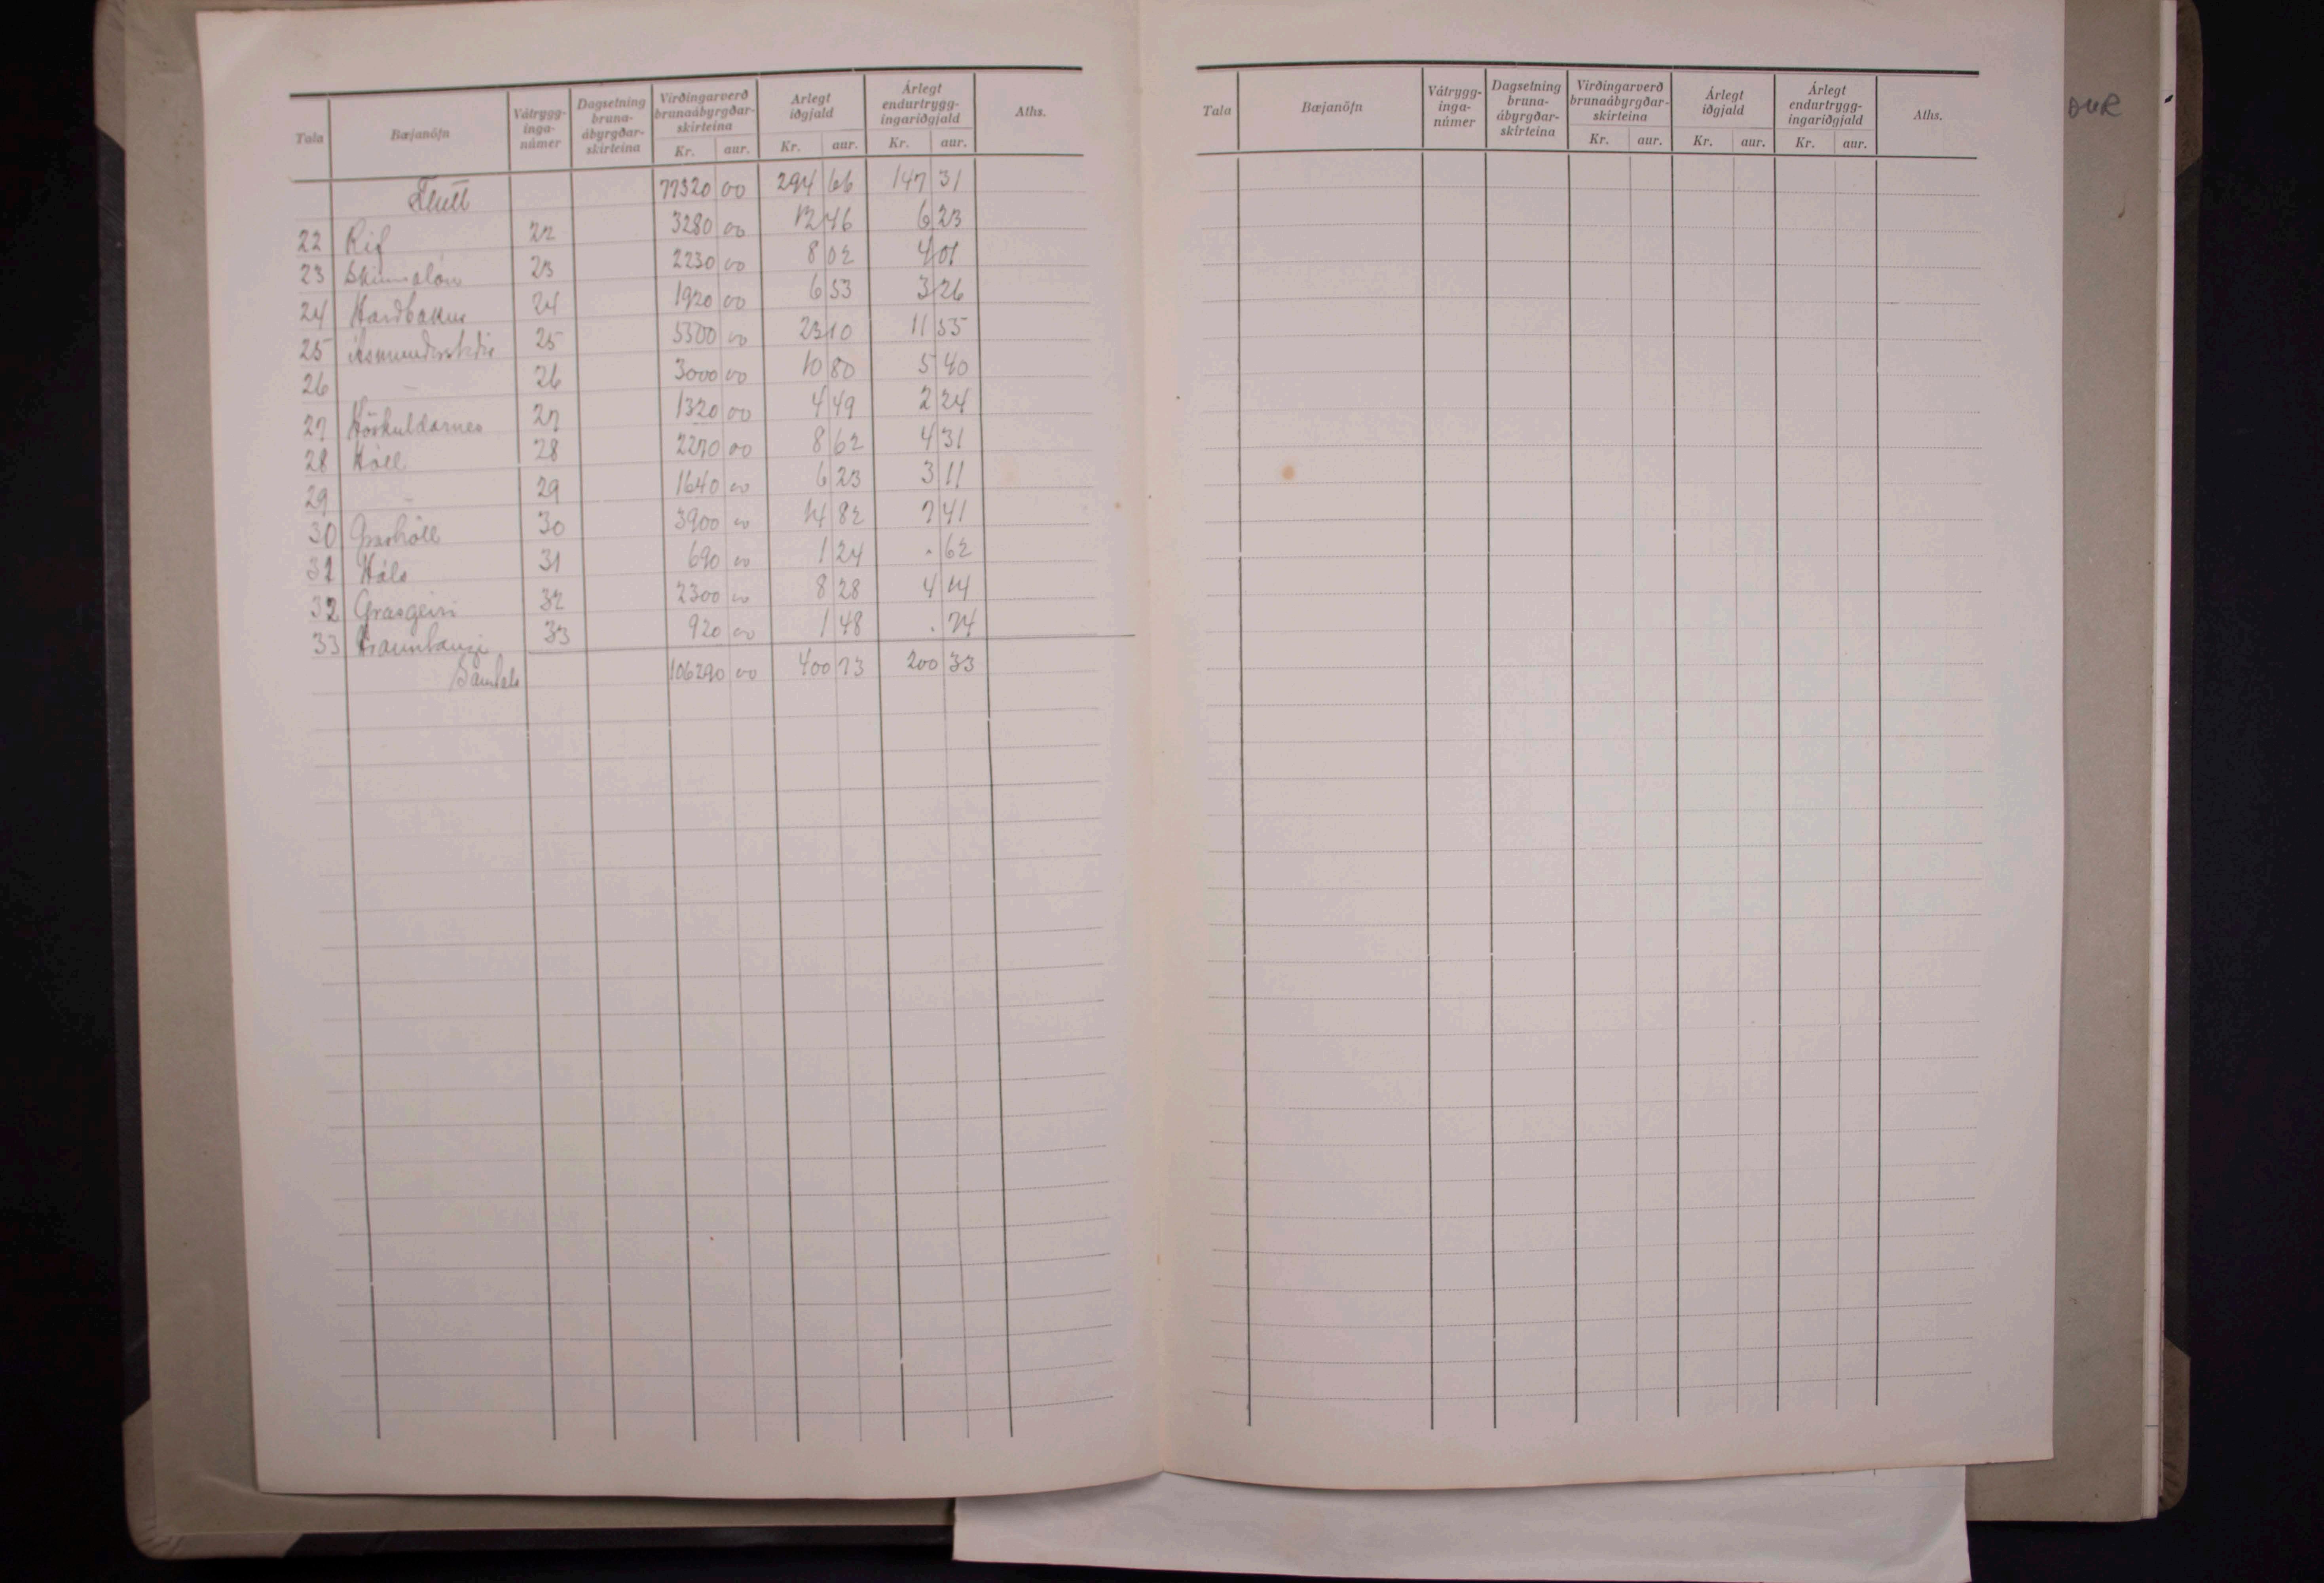 Tala Bæjanöfn Vátrygginga-númer Dagsetning bruna-ábyrgðar-skirteina Virðingarverð brunaábyrgðar-skirteina Kr. aur. Árlegt iðgjald Kr. aur. Árlegt endurtrygg-ingariðgjald Kr. aur. Aths.
Flutt 77320 00 294 66 147 31
22 Rif 22 3280 00 12 46 6 23
23 Skinnalón 23 2230 00 8 02 4 01
24 Harðbakur 24 1920 00 6 53 3 26
25 Ásmundarstaðir 25 5500 00 23 10 11 55
26 – 26 3000 00 10 80 5 40
27 Höskuldarnes 27 1320 00 4 49 2 24
28 Hóll 28 2270 00 8 62 4 31
29 – 29 1640 00 6 23 3 11
30 Grashóll 30 3900 00 14 82 7 41
31 Háls 31 690 00 1 24 . 62
32 Grasgeiri 32 2300 00 8 28 4 14
33 Hrauntangi 33 920 00 1 48 . 74
Samtals 106290 00 400 73 200 33
Tala Bæjanöfn Vátrygg-inga-númer Dagsetning bruna-ábyrgðar-skirteina Virðingarverð brunaábyrgðar-skirteina Kr. aur. Árlegt iðgjald Kr. aur. Árlegt endurtrygg-ingariðgjald Kr. aur. Aths.